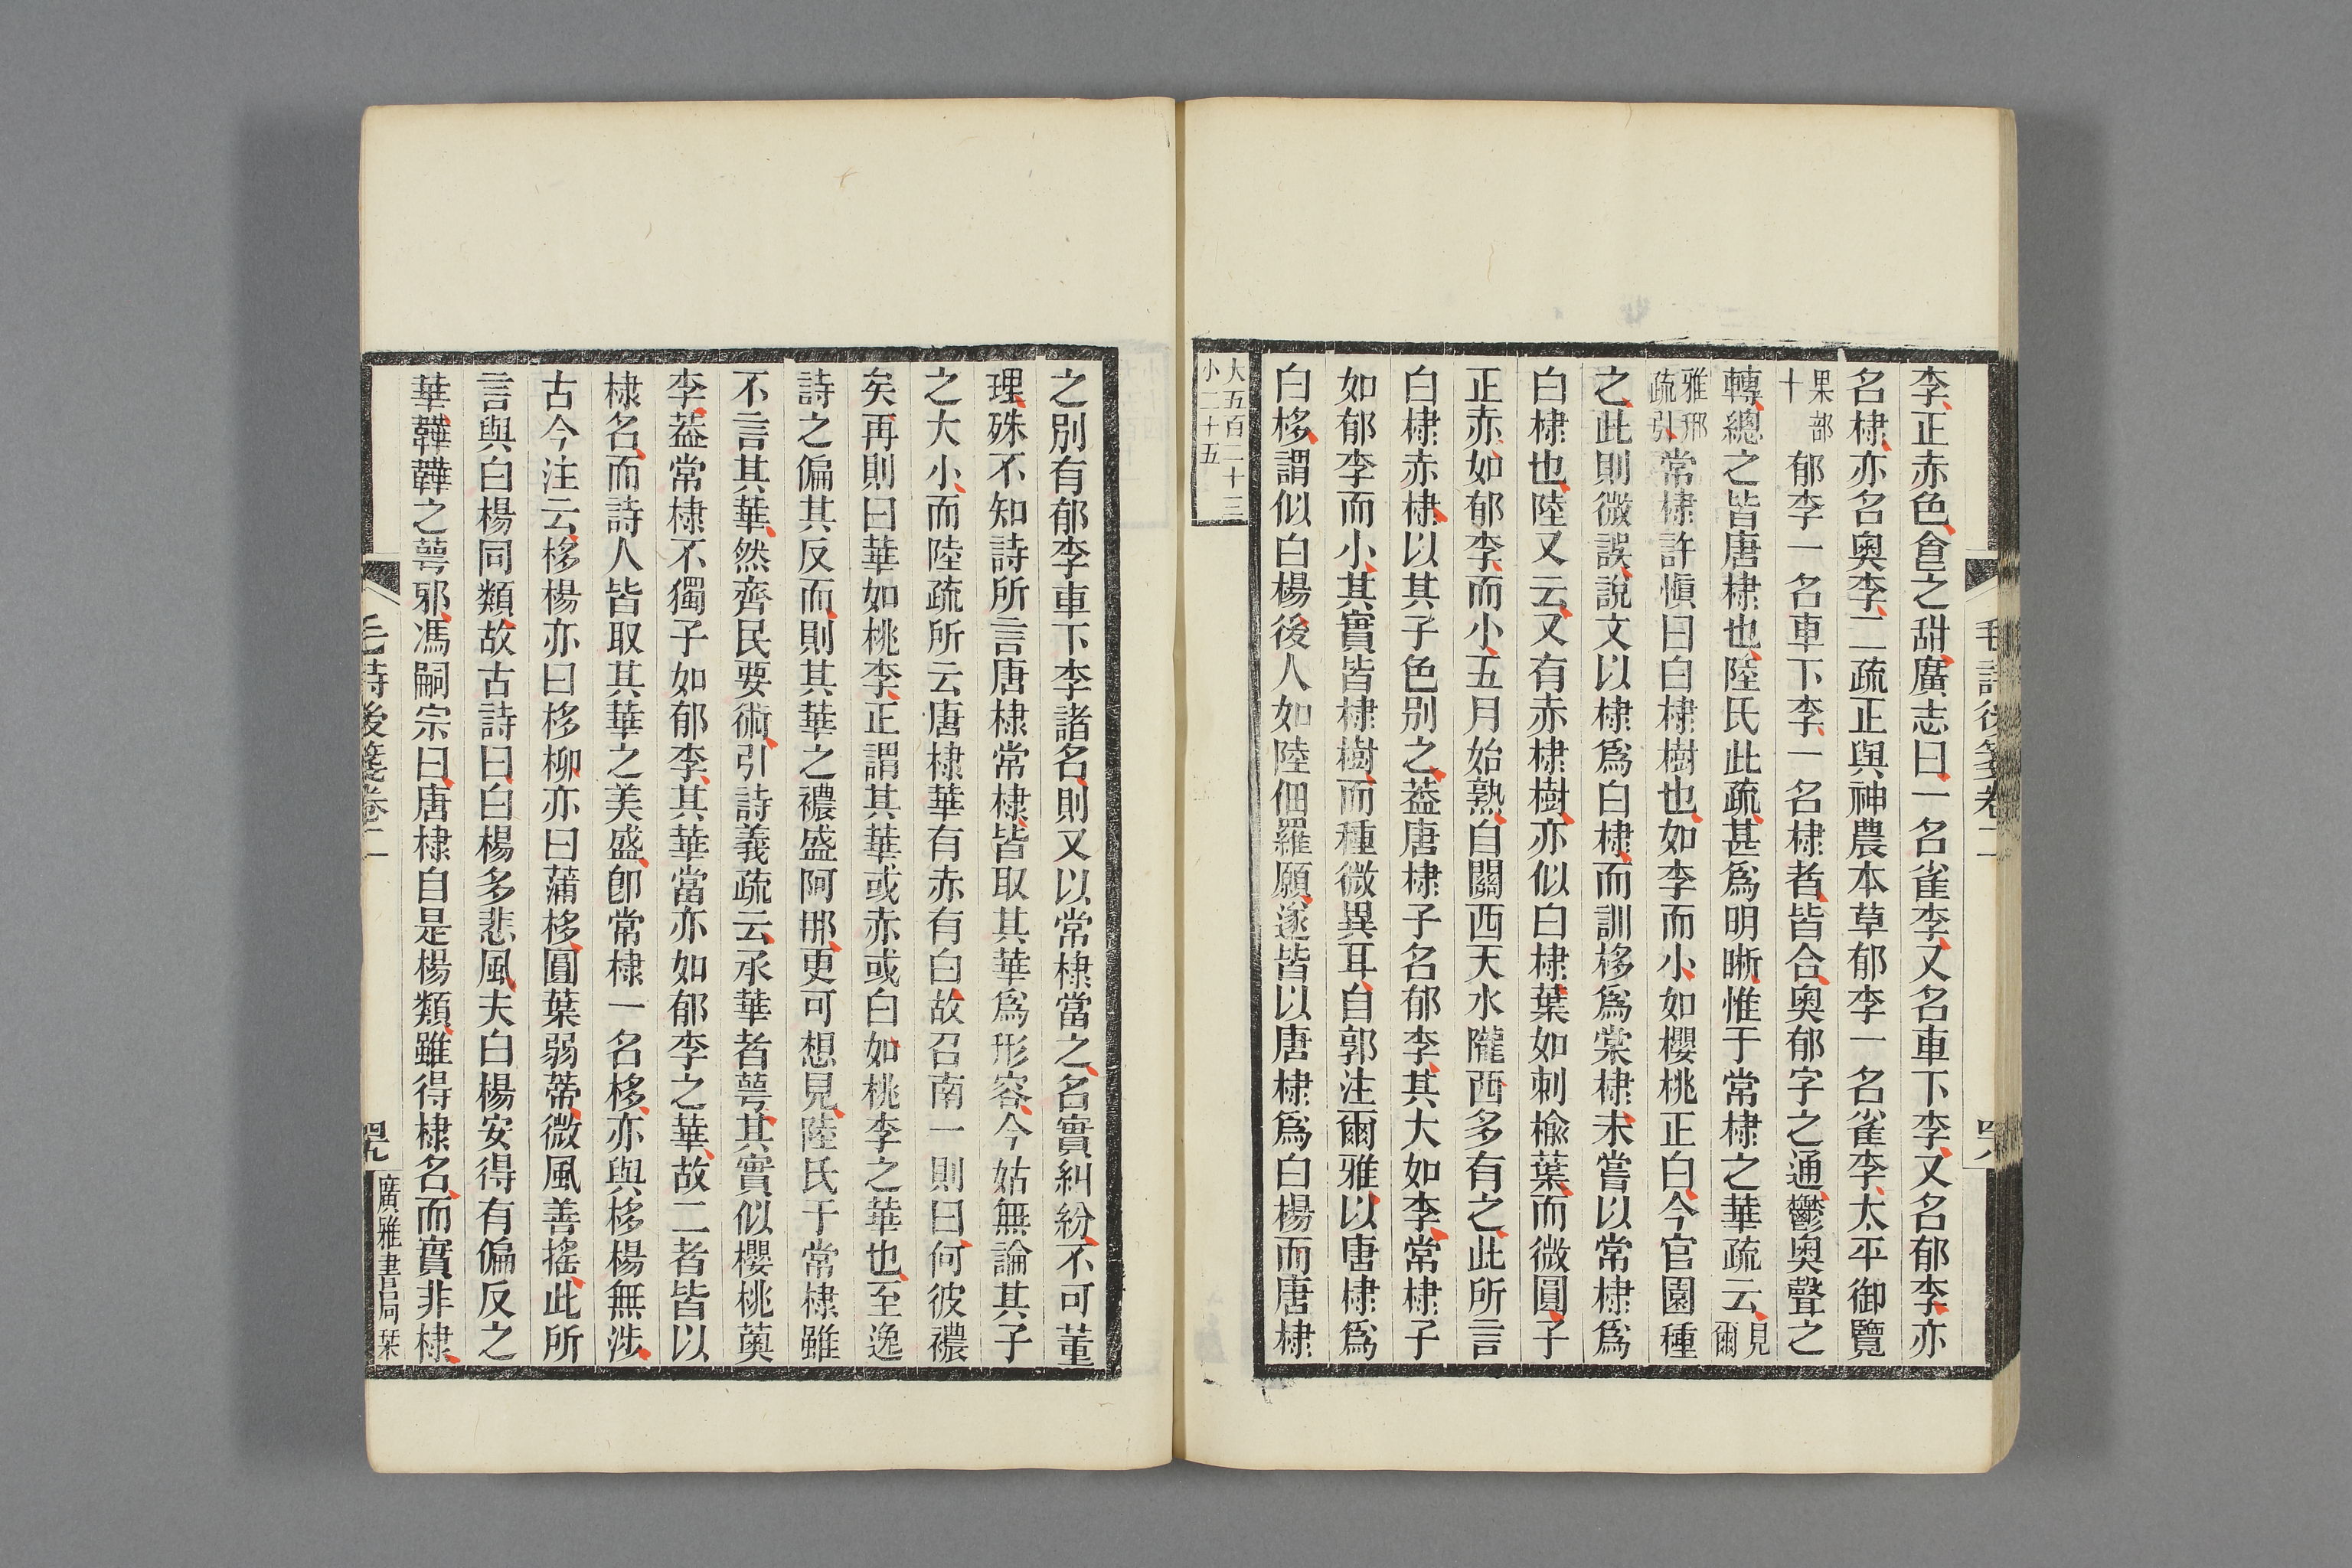 李正赤色食之甜廣志曰一名雀李又名車下李又名郁李亦
名棣亦名奧李二疏正與神農本草郁李一名雀李太平御覽
果部
十
郁李一名車下李一名棣者皆合奧郁字之通鬱奧聲之
轉總之皆唐棣也陸氏此疏甚爲明晰惟于常棣之華疏云
見
爾
雅邢
疏引
常棣許愼曰白棣樹也如李而小如櫻桃正白今官園種
之此則微誤說文以棣爲白棣而訓栘爲棠棣未嘗以常棣爲
白棣也陸又云又有赤棣樹亦似白棣葉如刺楡葉而微圓子
正赤如郁李而小五月始熟自關西天水隴西多有之此所言
白棣赤棣以其子色別之葢唐棣子名郁李其大如李常棣子
如郁李而小其實皆棣樹而種微異耳自郭注爾雅以唐棣爲
白栘謂似白楊後人如陸佃羅願遂皆以唐棣爲白楊而唐棣
大五百二十三
小二十五
毛詩後箋卷二
四八
之別有郁李車下李諸名則又以常棣當之名實糾紛不可董
理殊不知詩所言唐棣常棣皆取其華爲形容今姑無論其子
之大小而陸疏所云唐棣華有赤有白故召南一則曰何彼襛
矣再則曰華如桃李正謂其華或赤或白如桃李之華也至逸
詩之偏其反而則其華之襛盛阿那更可想見陸氏于常棣雖
不言其華然齊民要術引詩義疏云承華者萼其實似櫻桃薁
李葢常棣不獨子如郁李其華當亦如郁李之華故二者皆以
棣名而詩人皆取其華之美盛卽常棣一名栘亦與栘楊無涉
古今注云栘楊亦曰栘柳亦曰蒲栘圓葉弱蔕微風善搖此所
言與白楊同類故古詩曰白楊多悲風夫白楊安得有偏反之
華韡韡之萼邪馮嗣宗曰唐棣自是楊類雖得棣名而實非棣
毛詩後箋卷二
四九
廣雅書局栞